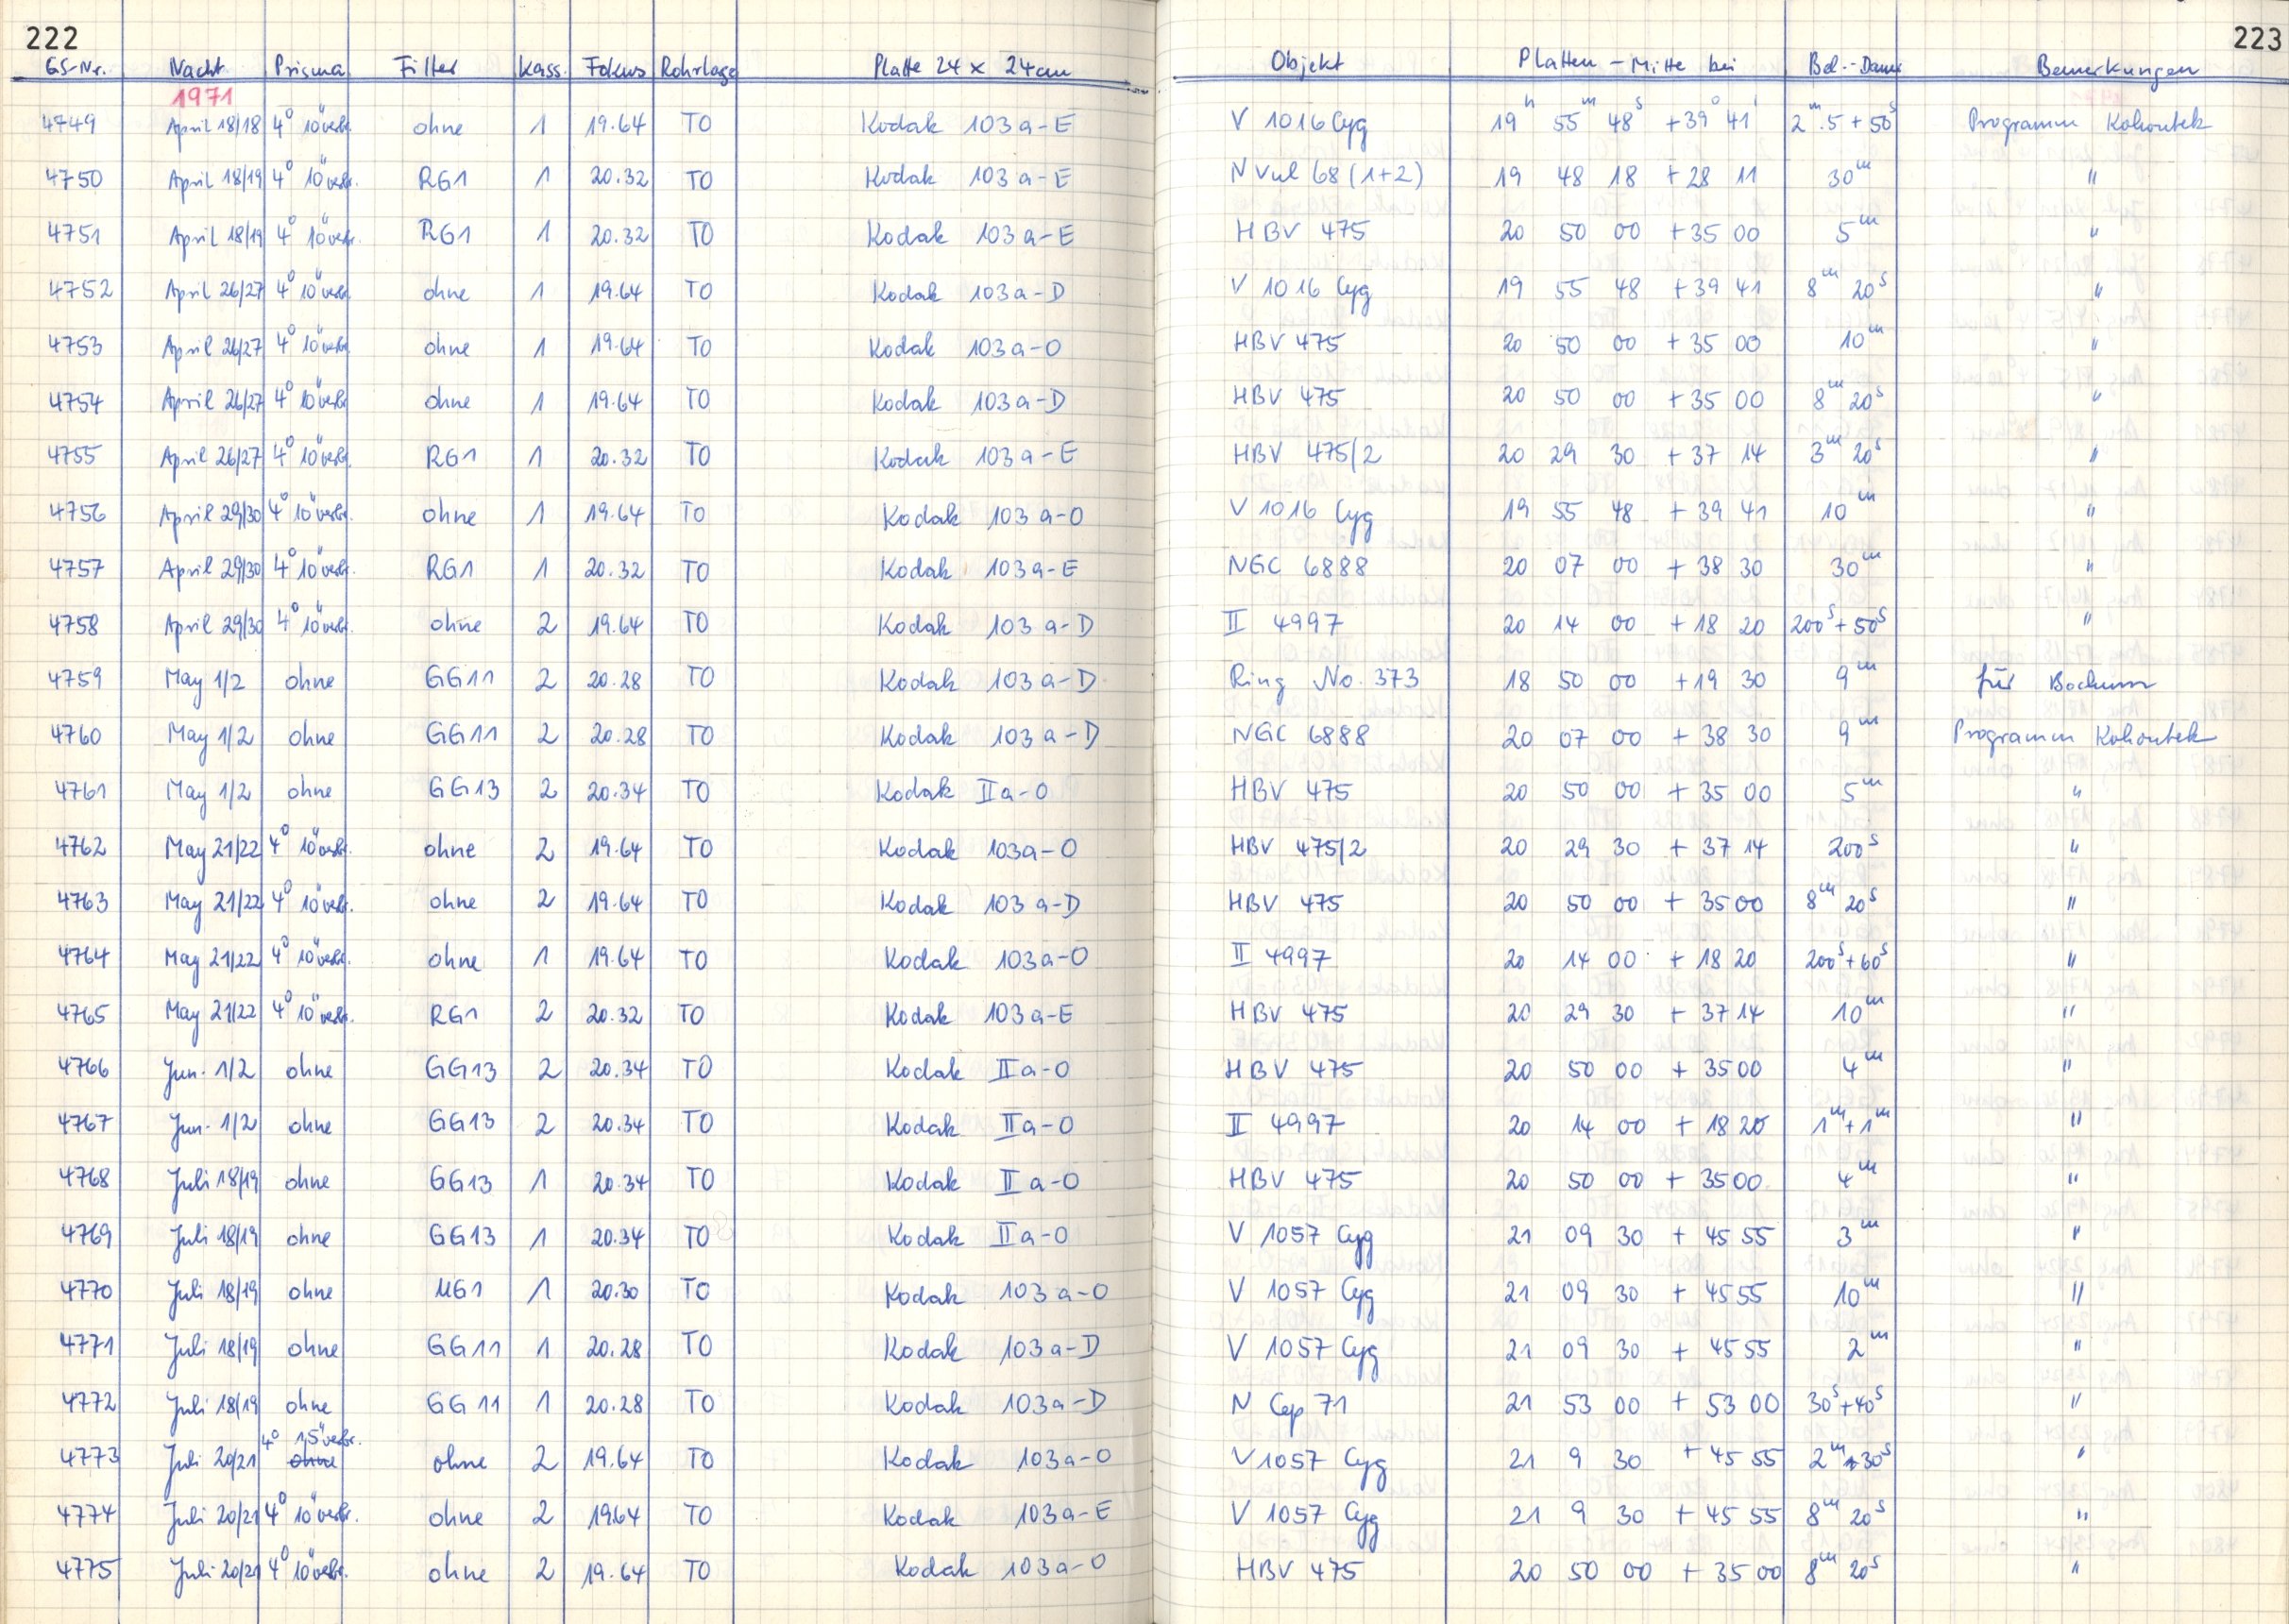 222
223
GS-Nr. Nacht Prisma Filter Kass. Fokus Rohrlage Platte 24 x 24cm Objekt Platten-Mitte bei Bel.-Dauer Bemerkungen
1971
4749 April 18/18 4° 10" verbr. ohne 1 19.64 TO Kodak 103a-E V 1016 Cyg 19h 55m 48s +39° 41' 2m.5 + 50s Programm Kohoutek
4750 April 18/19 4° 10" verbr. RG1 1 20.32 TO Kodak 103a-E N Vul 68 (1+2) 19 48 18 +28 11 30m "
4751 April 18/19 4° 10" verbr. RG1 1 20.32 TO Kodak 103a-E HBV 475 20 50 00 +35 00 5m "
4752 April 26/27 4° 10" verbr. ohne 1 19.64 TO Kodak 103a-D V 1016 Cyg 19 55 48 +39 41 8m 20s "
4753 April 26/27 4° 10" verbr. ohne 1 19.64 TO Kodak 103a-O HBV 475 20 50 00 +35 00 10m "
4754 April 26/27 4° 10" verbr. ohne 1 19.64 TO Kodak 103a-D HBV 475 20 50 00 +35 00 8m 20s "
4755 April 26/27 4° 10" verbr. RG1 1 20.32 TO Kodak 103a-E HBV 475/2 20 29 30 +37 14 3m 20s "
4756 April 29/30 4° 10" verbr. ohne 1 19.64 TO Kodak 103a-O V 1016 Cyg 19 55 48 +39 41 10m "
4757 April 29/30 4° 10" verbr. RG1 1 20.32 TO Kodak 103a-E NGC 6888 20 07 00 +38 30 30m "
4758 April 29/30 4° 10" verbr. ohne 2 19.64 TO Kodak 103a-D II 4997 20 14 00 +18 20 200s+50s "
4759 May 1/2 ohne GG11 2 20.28 TO Kodak 103a-D Ring No. 373 18 50 00 +19 30 9m für Bochum
4760 May 1/2 ohne GG11 2 20.28 TO Kodak 103a-D NGC 6888 20 07 00 +38 30 9m Programm Kohoutek
4761 May 1/2 ohne GG13 2 20.34 TO Kodak IIa-O HBV 475 20 50 00 +35 00 5m "
4762 May 21/22 4° 10" verbr. ohne 2 19.64 TO Kodak 103a-O HBV 475/2 20 29 30 +37 14 200s "
4763 May 21/22 4° 10" verbr. ohne 2 19.64 TO Kodak 103a-D HBV 475 20 50 00 +35 00 8m 20s "
4764 May 21/22 4° 10" verbr. ohne 1 19.64 TO Kodak 103a-O II 4997 20 14 00 +18 20 200s+60s "
4765 May 21/22 4° 10" verbr. RG1 2 20.32 TO Kodak 103a-E HBV 475 20 29 30 +37 14 10m "
4766 Jun. 1/2 ohne GG13 2 20.34 TO Kodak IIa-O HBV 475 20 50 00 +35 00 4m "
4767 Jun. 1/2 ohne GG13 2 20.34 TO Kodak IIa-O II 4997 20 14 00 +18 20 1m+1m "
4768 Juli 18/19 ohne GG13 1 20.34 TO Kodak IIa-O HBV 475 20 50 00 +35 00 4m "
4769 Juli 18/19 ohne GG13 1 20.34 TO Kodak IIa-O V 1057 Cyg 21 09 30 +45 55 3m "
4770 Juli 18/19 ohne UG1 1 20.30 TO Kodak 103a-O V 1057 Cyg 21 09 30 +45 55 10m "
4771 Juli 18/19 ohne GG11 1 20.28 TO Kodak 103a-D V 1057 Cyg 21 09 30 +45 55 2m "
4772 Juli 18/19 ohne GG11 1 20.28 TO Kodak 103a-D N Cep 71 21 53 00 +53 00 30s+40s "
4° 15" verbr.
4773 Juli 20/21 ohne ohne 2 19.64 TO Kodak 103a-O V 1057 Cyg 21 9 30 +45 55 2m+30s "
4774 Juli 20/21 4° 10" verbr. ohne 2 19.64 TO Kodak 103a-E V 1057 Cyg 21 9 30 +45 55 8m 20s "
4775 Juli 20/21 4° 10" verbr. ohne 2 19.64 TO Kodak 103a-O HBV 475 20 50 00 +35 00 8m 20s "